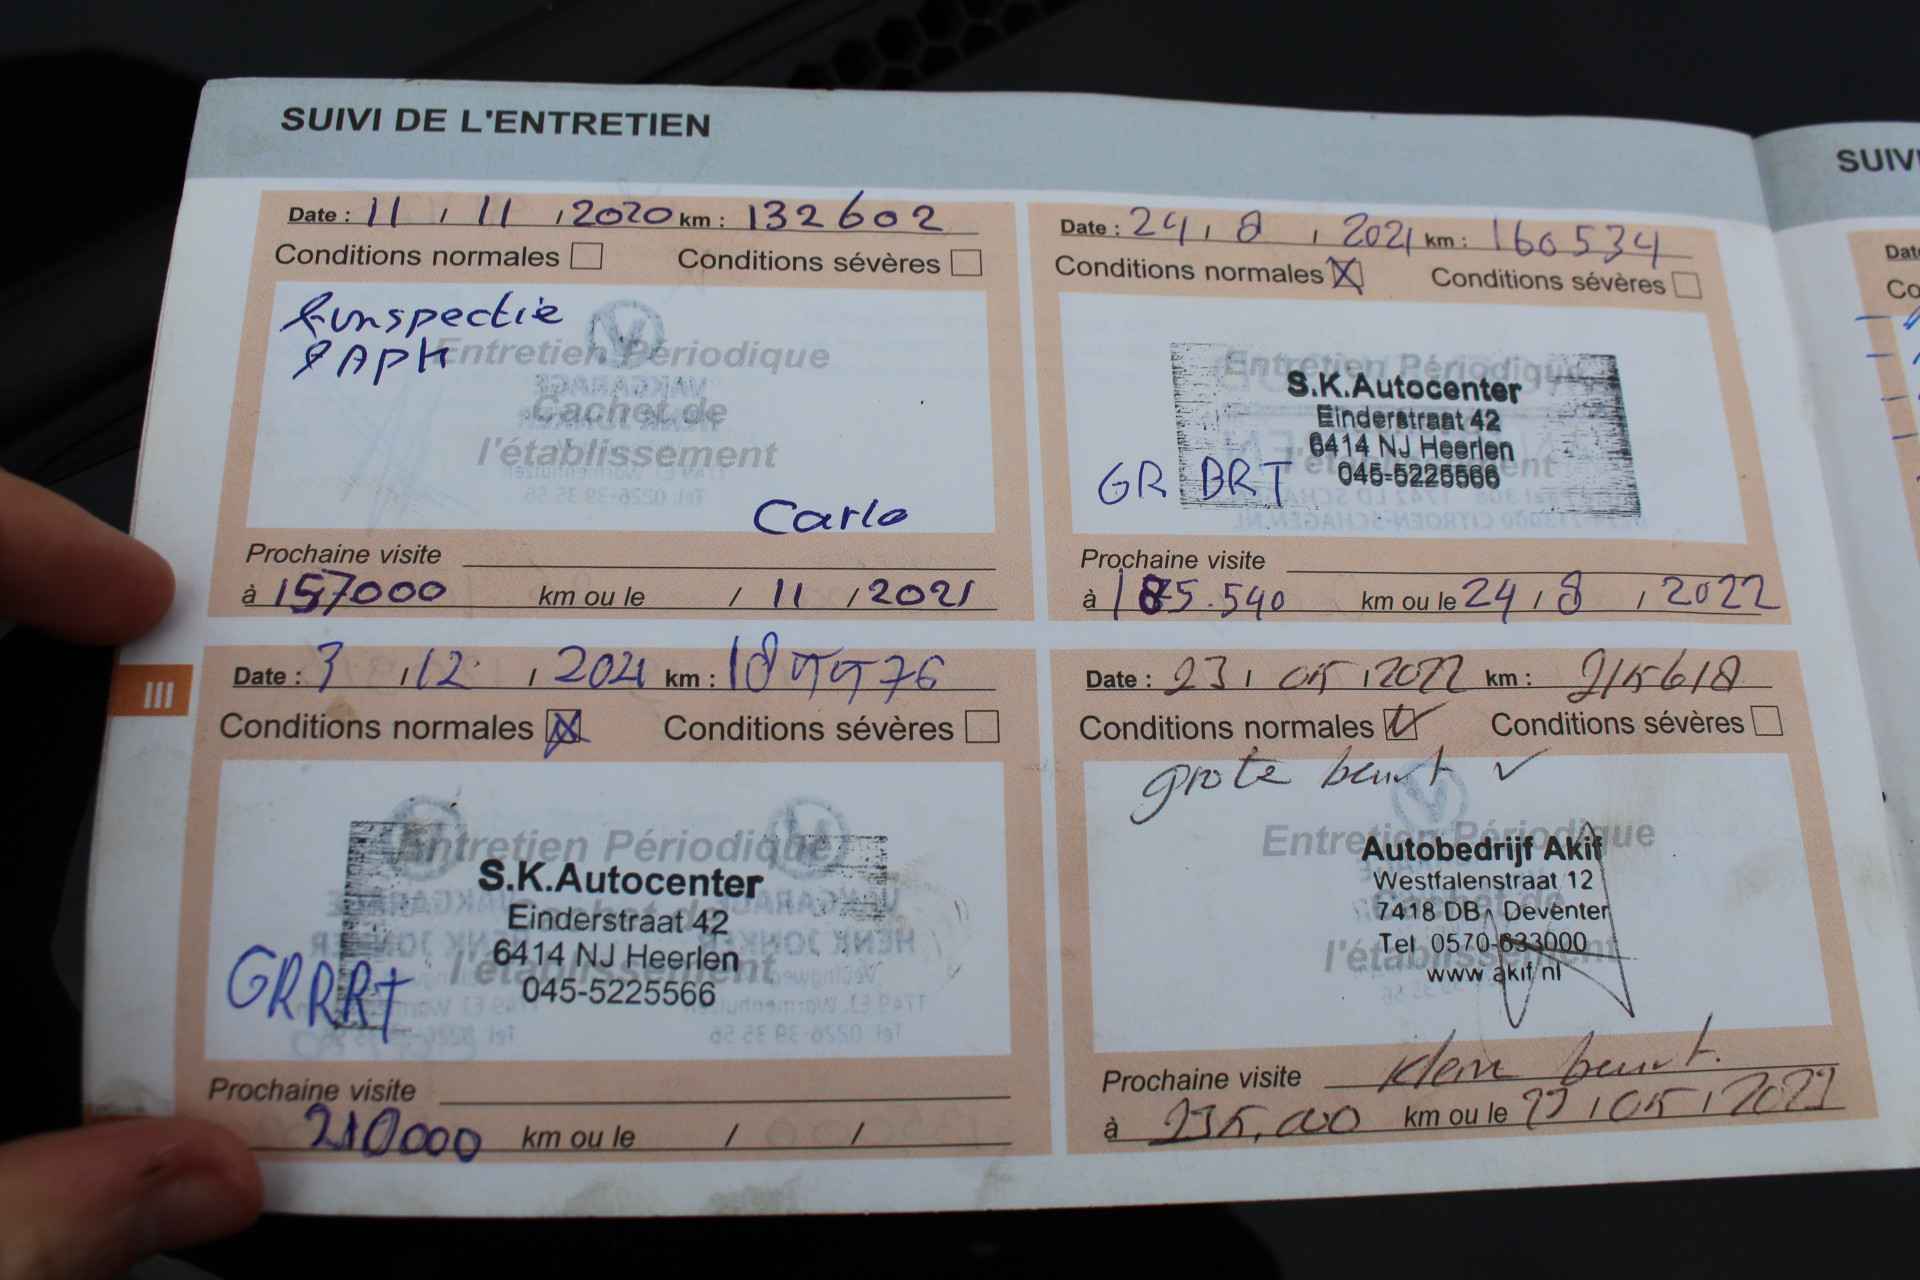 SUIVI DE L'ENTRETIEN
SUIVI
Date : 11 / 11 / 2020 km : 132602
Conditions normales Conditions sévères
APK
Entretien Périodique
Cachet de
l'établissement
Carlo
Prochaine visite
à 157000 km ou le / 11 / 2021
Date : 24 / 8 / 2021 km : 160534
Conditions normales Conditions sévères
Entretien Périodique
S.K.Autocenter
Einderstraat 42
6414 NJ Heerlen
045-5225566
GR BRT
Prochaine visite
à 185.540 km ou le 24 / 8 / 2022
III
Date : 3 / 12 / 2021 km :
Conditions normales Conditions sévères
Entretien Périodique
S.K.Autocenter
Einderstraat 42
6414 NJ Heerlen
l'établissement
045-5225566
Prochaine visite
210000 km ou le / /
Date : 23 / 05 / 2022 km : 215618
Conditions normales Conditions sévères
grote beurt
Entretien Périodique
Autobedrijf Akif
Westfalenstraat 12
7418 DB Deventer
Tel 0570-633000
l'établissement
www.akif.nl
Prochaine visite klein beurt.
à 235,000 km ou le 23 / 05 / 2023